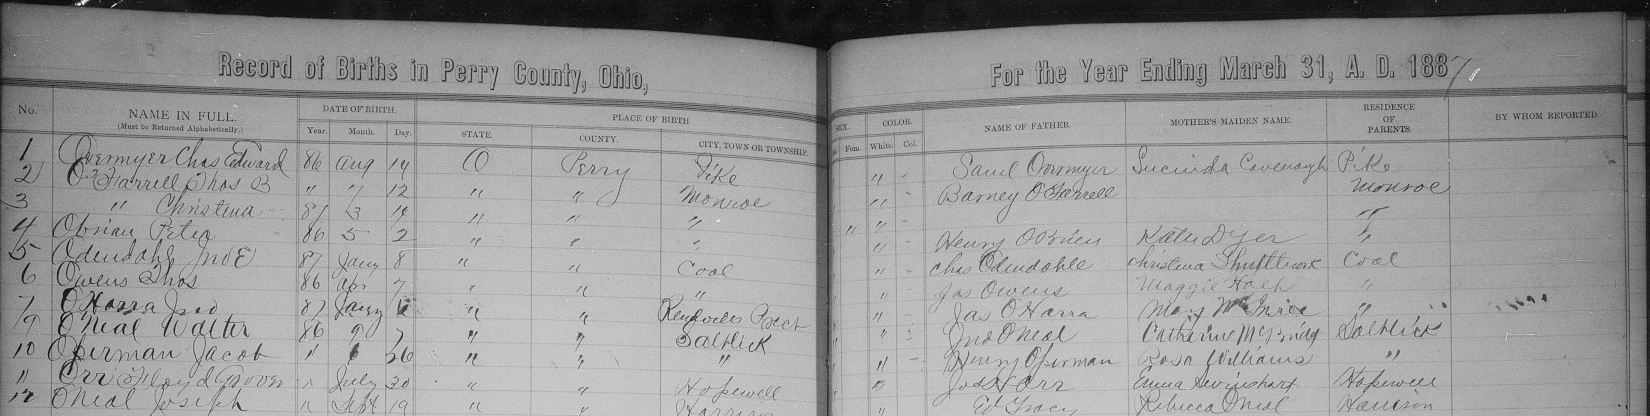 Record of Births in Perry County, Ohio, For the Year Ending March 31, A. D. 1887.
No. NAME IN FULL. DATE OF BIRTH. PLACE OF BIRTH SEX. COLOR. NAME OF FATHER. MOTHER'S MAIDEN NAME. RESIDENCE OF PARENTS. BY WHOM REPORTED
(Must be Returned Alphabetically.) Year. Month. Day. STATE. COUNTY. CITY, TOWN OR TOWNSHIP. Fem. White. Col.
1 Overmyer Chas Edward 86 Aug 19 O Perry Pike " - Saml Overmyer Lucinda Cavenaugh Pike
2 O'Farrell Thos B " " 12 " " Monroe " - Barney O'Farrell Monroe
3 " Christena 87 3 19 " " " " - "
4 Obrian Peter 86 5 2 " " " " " - Henry O'Brien Kate Dyer "
5 Odendahl Jno E 87 Jany 8 " " Coal " - Chas Odendahle Christena Coal
6 Owens Thos 86 Apr 7 " " " " - Jas Owens Maggie "
7 O'Harra Jno 87 Jany " " " - Jas O Harra "
9 O'Neal Walter 86 9 7 " " Saltlick " - Jno O Neal Catharine Saltlick
10 Operman Jacob " 26 " " " " - Henry Operman Rosa Williams "
11 Orr Floyd Grover " July 30 " " Hopewell " - Orr Emma Hopewell
12 O Neal Joseph " Sept 19 " " " Ed Tracy Rebecca Oneal Harrison